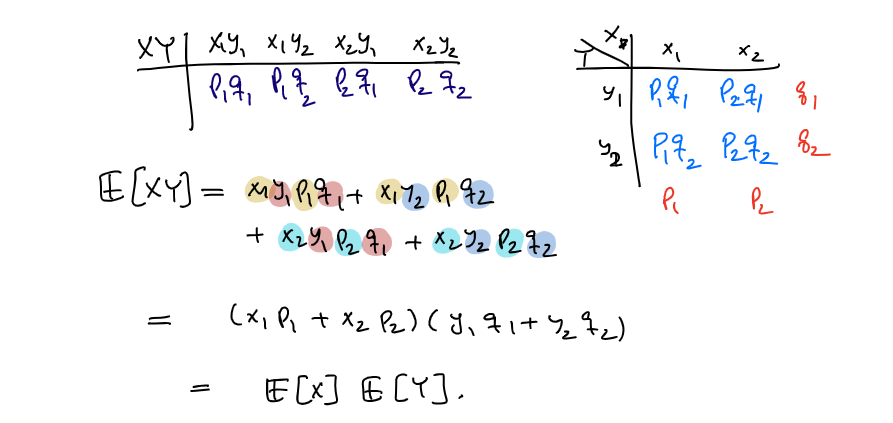 XY | x₁y₁ x₁y₂ x₂y₁ x₂y₂
p₁q₁ p₁q₂ p₂q₁ p₂q₂
Y X x₁ x₂
y₁ p₁q₁ p₂q₁ q₁
y₂ p₁q₂ p₂q₂ q₂
p₁ p₂
𝔼[XY] = x₁y₁p₁q₁ + x₁y₂p₁q₂
+ x₂y₁p₂q₁ + x₂y₂p₂q₂
= (x₁p₁ + x₂p₂)(y₁q₁ + y₂q₂)
= 𝔼[X] 𝔼[Y].